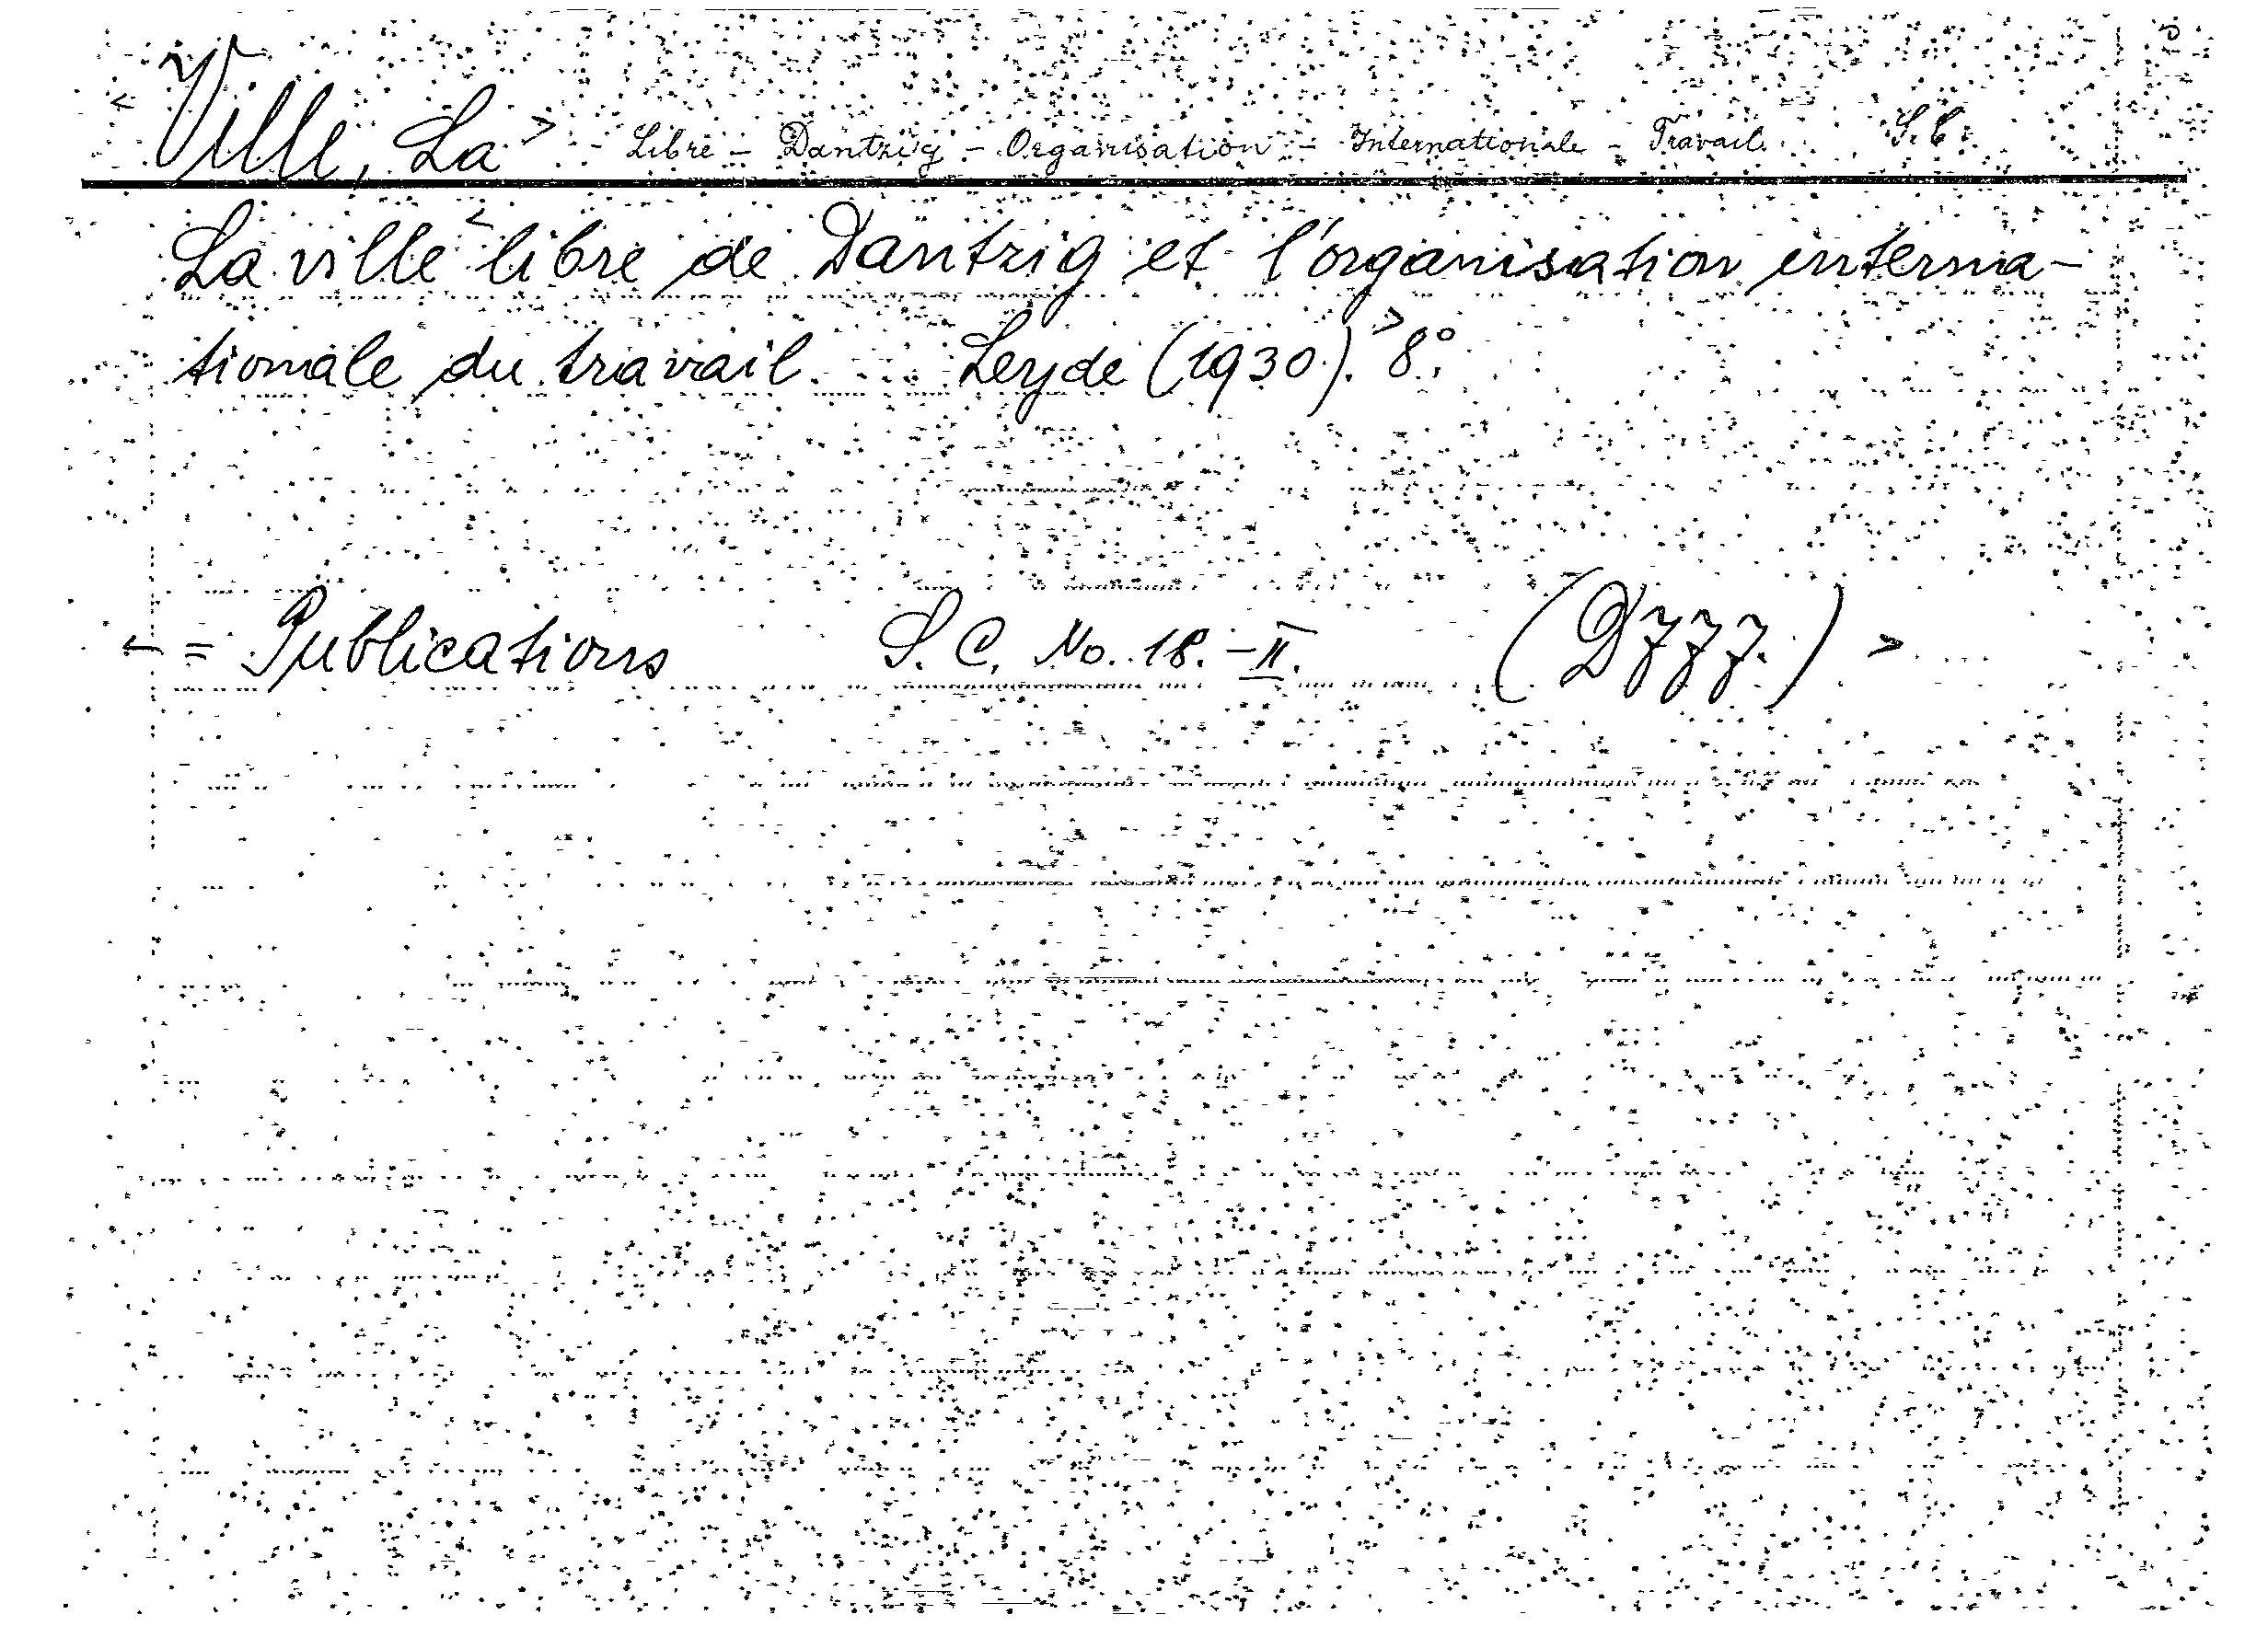 < Ville, La > - Libre - Dantzig - Organisation - Internationale - Travail. S.C.
La ville < libre de Dantzig et l'organisation interna-
tionale du travail. Leyde (1930). > 8°.
< = Publications S. C. No. 18. - II. (D777.) >